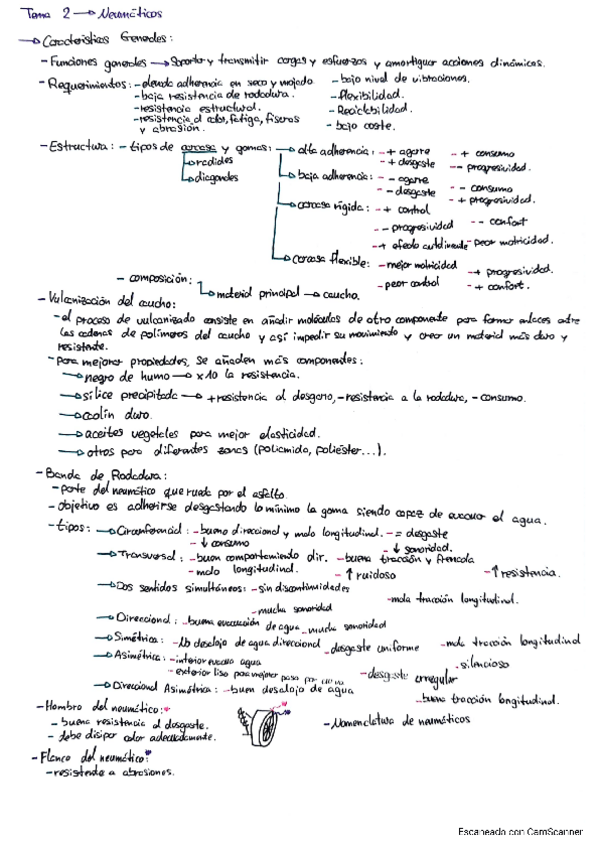 Tema 2 → Neumáticos
→ Características Generales:
- Funciones generales → Soportar y transmitir cargas y esfuerzos y amortiguar acciones dinámicas.
- Requerimientos: - elevada adherencia en seco y mojado - bajo nivel de vibraciones.
- baja resistencia de rodadura. - flexibilidad.
- resistencia estructural. - Reciclabilidad.
- resistencia al calor, fatiga, fisuras - bajo coste.
y abrasión.
- Estructura: - tipos de carcasa y gomas: → alta adherencia: - + agarre - + consumo
→ radiales - + desgaste - - progresividad.
→ diagonales → baja adherencia: - - agarre - - consumo
- - desgaste - + progresividad.
→ carcasa rígida: - + control - - confort
- - progresividad
- + efecto - peor motricidad.
→ carcasa flexible: - mejor motricidad - + progresividad.
- peor control - + confort.
- composición:
→ material principal → caucho.
- Vulcanización del caucho:
- el proceso de vulcanizado consiste en añadir moléculas de otro componente para formar enlaces entre
las cadenas de polímeros del caucho y así impedir su movimiento y crear un material más duro y
resistente.
- Para mejorar propiedades, se añaden más componentes:
→ negro de humo → x10 la resistencia.
→ sílice precipitada → + resistencia al desgarro, - resistencia a la rodadura, - consumo.
→ caolín duro.
→ aceites vegetales para mejor elasticidad.
→ otros para diferentes zonas (poliamida, poliéster...).
- Banda de Rodadura:
- parte del neumático que rueda por el asfalto.
- objetivo es adherirse desgastando lo mínimo la goma siendo capaz de evacuar el agua.
- tipos: → Circunferencial: - bueno direccional y malo longitudinal. - = desgaste
- ↓ consumo - ↓ sonoridad.
→ Transversal: - buen comportamiento dir. - buena tracción y frenada
- malo longitudinal. - ↑ ruidoso - ↑ resistencia.
→ Dos sentidos simultáneos: - sin discontinuidades
- mucha sonoridad - mala tracción longitudinal.
→ Direccional: - buena evacuación de agua - mucha sonoridad
→ Simétrica: - No desalojo de agua direccional - desgaste uniforme - mala tracción longitudinal
→ Asimétrica: - interior evacua agua - silencioso
- exterior liso para mejorar paso por curva - desgaste irregular
→ Direccional Asimétrica: - buen desalojo de agua - buena tracción longitudinal.
- Hombro del neumático: *
- buena resistencia al desgaste. - Nomenclatura de neumáticos
- debe disipar calor adecuadamente.
- Flanco del neumático: *
- resistente a abrasiones.
Escaneado con CamScanner